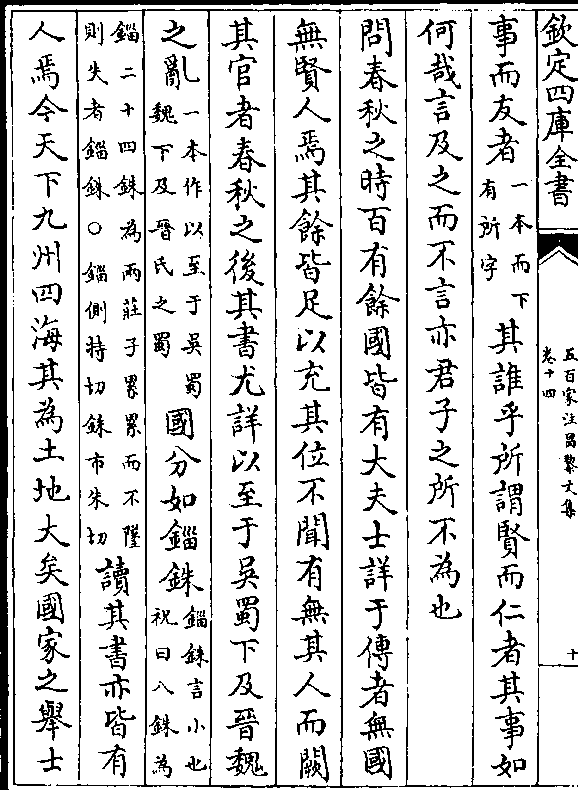 欽定四庫全書
五百家注昌黎文集
卷十四
十
事而友者一本而下有所字其誰乎所謂賢而仁者其事如
何哉言及之而不言亦君子之所不為也
問春秋之時百有餘國皆有大夫士詳于傳者無國
無賢人焉其餘皆足以充其位不聞有無其人而闕
其官者春秋之後其書尤詳以至于吳蜀下及晉魏
之亂一本作以至于吳蜀魏下及晉氏之蜀國分如錙銖錙銖言小也祝曰八銖為
錙二十四銖為兩莊子累累而不墜則失者錙銖○錙側持切銖市朱切讀其書亦皆有
人焉今天下九州四海其為土地大矣國家之舉士